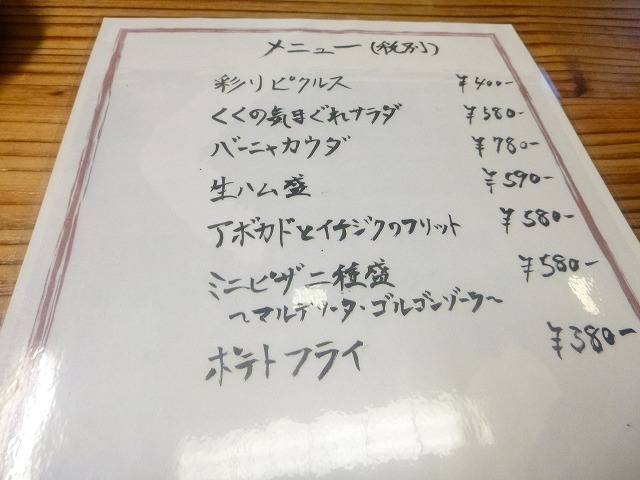 メニュー(税別)
彩りピクルス ¥400-
くくの気まぐれサラダ ¥580-
バーニャカウダ ¥780-
生ハム盛 ¥590-
アボカドとイチジクのフリット ¥580-
ミニピザ二種盛 ¥580-
～マルゲリータ・ゴルゴンゾーラ～
ポテトフライ ¥380-